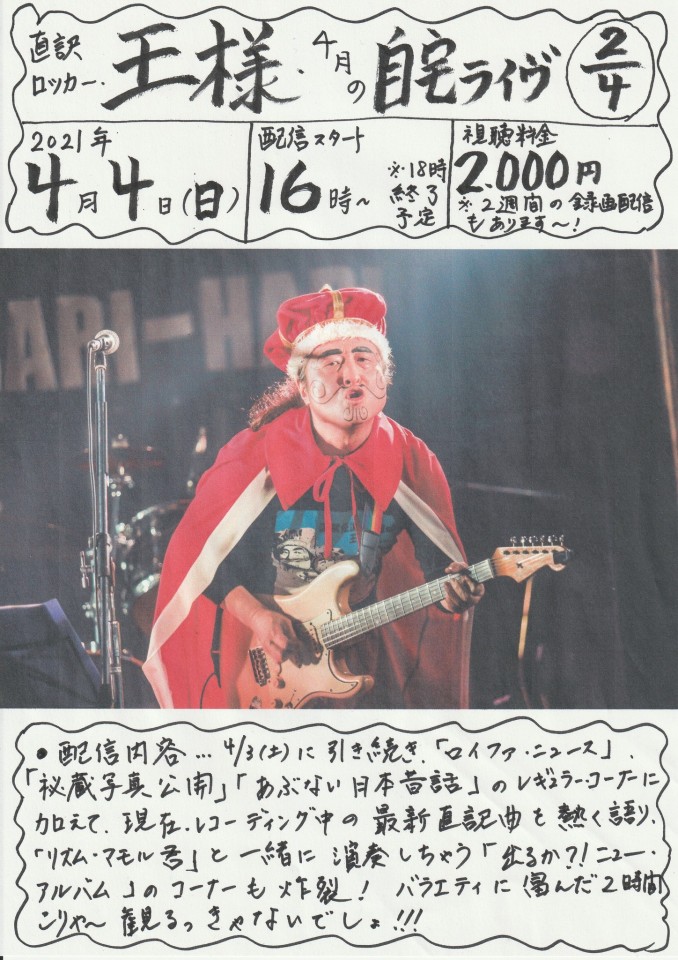 直訳
ロッカー・
王様・
4月
の
自宅ライヴ
2/4
2021年
4月4日(日)
配信スタート
16時~
※18時
終了
予定
視聴料金
2.000円
※2週間の録画配信
もあります〜!
API-HAPI
●配信内容…4/3(土)に引き続き、「ロイファ・ニュース」、
「秘蔵写真公開」「あぶない日本昔話」のレギュラー・コーナーに
加えて、現在、レコーディング中の最新直訳曲を熱く語り、
「リズム・マモル君」と一緒に演奏しちゃう「出るか?!ニュー・
アルバム」のコーナーも炸裂! バラエティに富んだ2時間
こりゃ〜観るっきゃないでしょ!!!